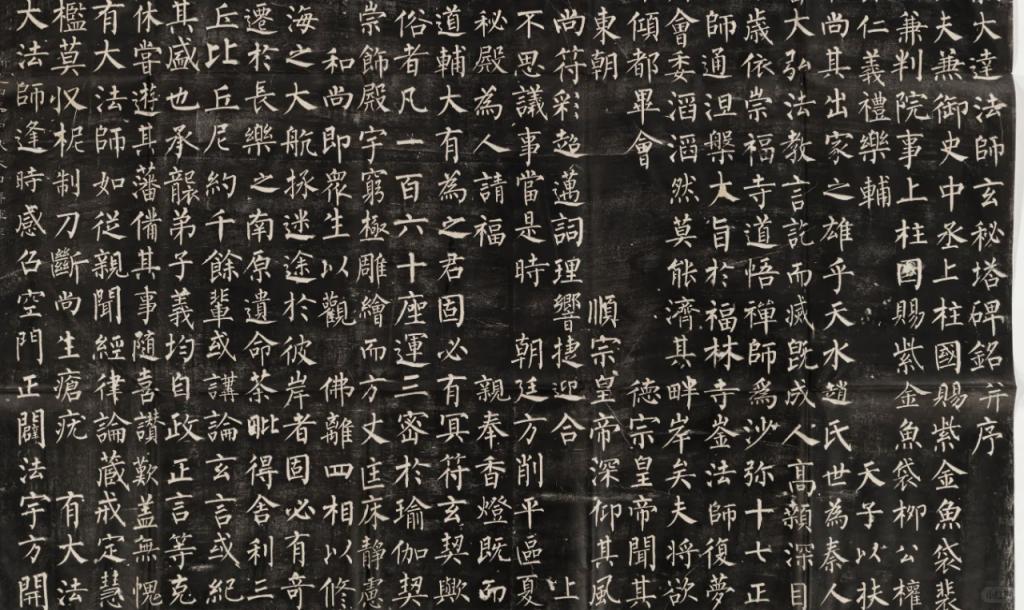 大達法師玄秘塔碑銘并序
夫兼御史中丞上柱國賜紫金魚袋裴
兼判院事上柱國賜紫金魚袋柳公權
仁義禮樂輔　天子以扶
尚其出家之雄乎天水趙氏世為秦人
大弘法教言訖而滅既成人高顙深目
歲依崇福寺道悟禪師為沙弥十七正
師通涅槃大旨於福林寺崟法師復夢
會委滔滔然莫能濟其畔岸矣夫將欲
傾都畢會　德宗皇帝聞其
東朝　順宗皇帝深仰其風
尚符彩超邁詞理響捷迎合上
不思議事當是時　朝廷方削平區夏
秘殿為人請福　親奉香燈既而
道輔大有為之君固必有冥符玄契歟
俗者凡一百六十座運三密於瑜伽契
崇飾殿宇窮極雕繪而方丈匡床静慮
和尚即衆生以觀　佛離四相以修
海之大航拯迷途於彼岸者固必有奇
遷於長樂之南原遺命茶毗得舍利三
丘比丘尼約千餘輩或講論玄言或紀
其盛也承襲弟子義均自政正言等克
休嘗遊其藩備其事随喜讃歎蓋無愧
有大法師如從親聞經律論藏戒定慧
檻莫収柅制刀斷尚生瘡疣　有大法
大法師逢時感召空門正闢法宇方開